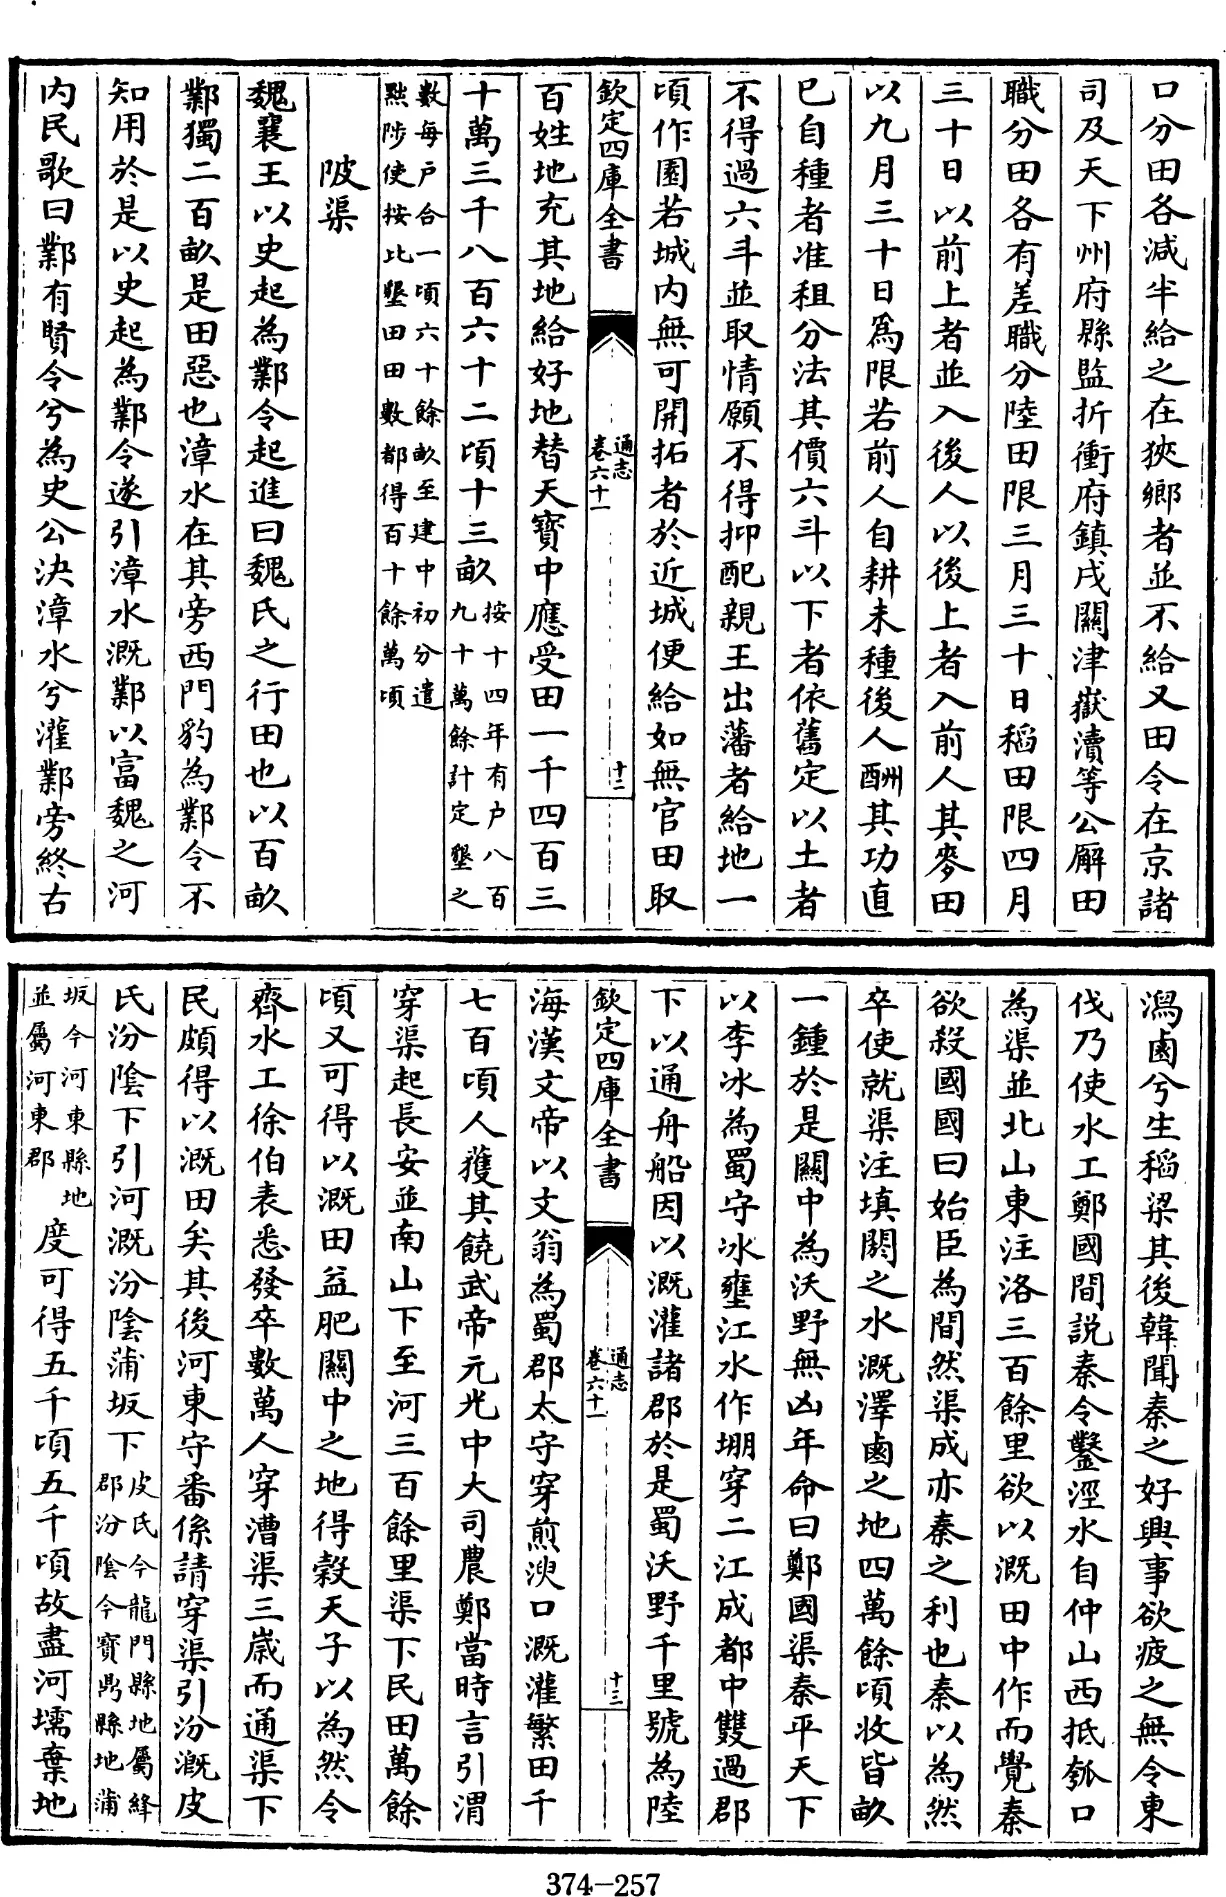 口分田各減半給之在狹鄉者並不給又田令在京諸
司及天下州府縣監折衝府鎮戍關津嶽瀆等公廨田
職分田各有差職分陸田限三月三十日稻田限四月
三十日以前上者並入後人以後上者入前人其麥田
以九月三十日爲限若前人自耕未種後人酬其功直
已自種者准租分法其價六斗以下者依舊定以上者
不得過六斗並取情願不得抑配親王出藩者給地一
頃作園若城内無可開拓者於近城便給如無官田取
欽定四庫全書
通志
卷六十一
十二
百姓地充其地給好地替天寶中應受田一千四百三
十萬三千八百六十二頃十三畝按十四年有户八百
九十萬餘計定墾之
數每户合一頃六十餘畝至建中初分遣
黜陟使按比墾田田數都得百十餘萬頃
陂渠
魏襄王以史起為鄴令起進曰魏氏之行田也以百畝
鄴獨二百畝是田惡也漳水在其旁西門豹為鄴令不
知用於是以史起為鄴令遂引漳水溉鄴以富魏之河
内民歌曰鄴有賢令兮為史公決漳水兮灌鄴旁終古
潟鹵兮生稻粱其後韓聞秦之好興事欲疲之無令東
伐乃使水工鄭國間説秦令鑿涇水自仲山西抵瓠口
為渠並北山東注洛三百餘里欲以溉田中作而覺秦
欲殺國國曰始臣為間然渠成亦秦之利也秦以為然
卒使就渠注填閼之水溉澤鹵之地四萬餘頃收皆畝
一鍾於是關中為沃野無凶年命曰鄭國渠秦平天下
以李冰為蜀守冰壅江水作堋穿二江成都中雙過郡
下以通舟船因以溉灌諸郡於是蜀沃野千里號為陸
欽定四庫全書
通志
卷六十一
十三
海漢文帝以文翁為蜀郡太守穿煎㳛口溉灌繁田千
七百頃人獲其饒武帝元光中大司農鄭當時言引渭
穿渠起長安並南山下至河三百餘里渠下民田萬餘
頃又可得以溉田益肥關中之地得穀天子以為然令
齊水工徐伯表悉發卒數萬人穿漕渠三歲而通渠下
民頗得以溉田矣其後河東守番係請穿渠引汾溉皮
氏汾陰下引河溉汾陰蒲坂下皮氏今龍門縣地屬絳
郡汾陰今寶鼎縣地蒲
坂今河東縣地
並屬河東郡度可得五千頃五千頃故盡河壖棄地
374-257